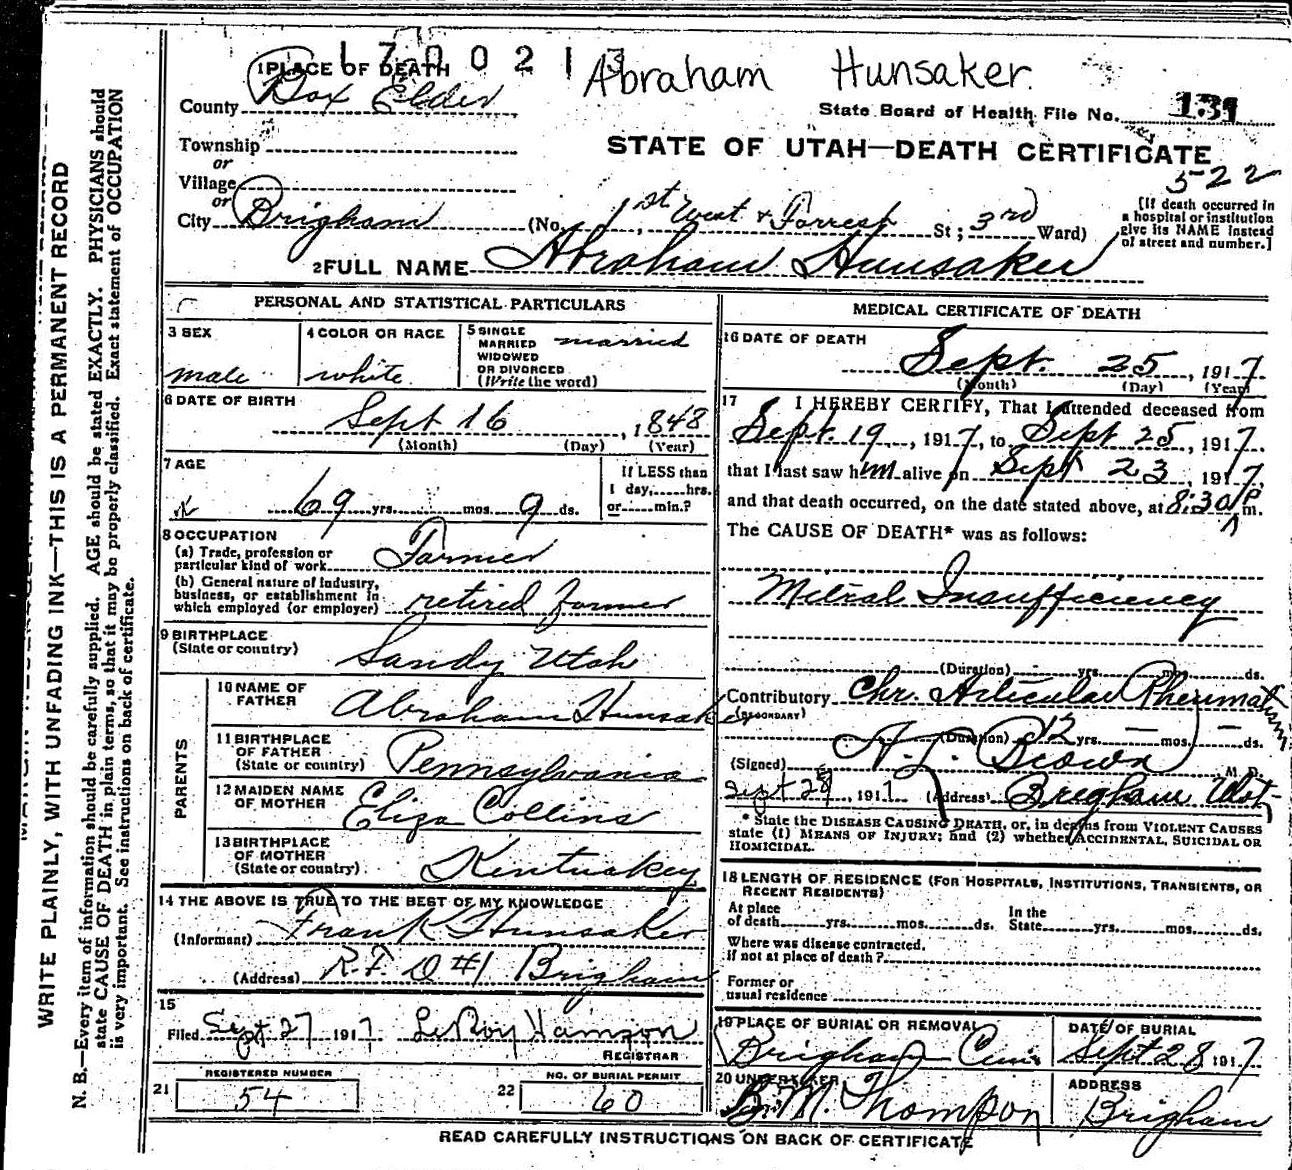 1700213 Abraham Hunsaker
1 PLACE OF DEATH
County Box Elder
State Board of Health File No. 131
Township
STATE OF UTAH—DEATH CERTIFICATE
or
522
Village
or
City Brigham (No. 1st West & Forrest St; 3rd Ward)
[If death occurred in
a hospital or institution
give its NAME instead
of street and number.]
2 FULL NAME Abraham Hunsaker
PERSONAL AND STATISTICAL PARTICULARS
3 SEX
male
4 COLOR OR RACE
white
5 SINGLE
MARRIED
WIDOWED
OR DIVORCED
(Write the word)
married
6 DATE OF BIRTH
Sept 16, 1848
(Month) (Day) (Year)
7 AGE
69 yrs. mos. 9 ds.
If LESS than
1 day, hrs.
or min.?
8 OCCUPATION
(a) Trade, profession or
particular kind of work Farmer
(b) General nature of industry,
business, or establishment in
which employed (or employer) retired farmer
9 BIRTHPLACE
(State or country) Sandy Utah
PARENTS
10 NAME OF
FATHER Abraham Hunsaker
11 BIRTHPLACE
OF FATHER
(State or country) Pennsylvania
12 MAIDEN NAME
OF MOTHER Eliza Collins
13 BIRTHPLACE
OF MOTHER
(State or country) Kentuckey
14 THE ABOVE IS TRUE TO THE BEST OF MY KNOWLEDGE
(Informant) Frank Hunsaker
(Address) R.F.D #1 Brigham
15
Filed Sept 27 1917 LeRoy Hampton
REGISTRAR
21 REGISTERED NUMBER
54
22 NO. OF BURIAL PERMIT
60
MEDICAL CERTIFICATE OF DEATH
16 DATE OF DEATH
Sept. 25, 1917
(Month) (Day) (Year)
17 I HEREBY CERTIFY, That I attended deceased from
Sept. 19, 1917, to Sept 25, 1917.
that I last saw him alive on Sept 23, 1917,
and that death occurred, on the date stated above, at 8:30 P m.
The CAUSE OF DEATH* was as follows:
Mitral Insufficiency
(Duration) yrs. mos. ds.
Contributory Chr. Articular Rheumatism
(SECONDARY)
(Duration) 12 yrs. — mos. — ds.
(Signed) A.L. Brown M.D.
Sept 28, 1917 (Address) Brigham Utah
* State the DISEASE CAUSING DEATH, or, in deaths from VIOLENT CAUSES
state (1) MEANS OF INJURY; and (2) whether ACCIDENTAL, SUICIDAL OR
HOMICIDAL.
18 LENGTH OF RESIDENCE (FOR HOSPITALS, INSTITUTIONS, TRANSIENTS, OR
RECENT RESIDENTS)
At place
of death yrs. mos. ds.
In the
State yrs. mos. ds.
Where was disease contracted,
if not at place of death?
Former or
usual residence
19 PLACE OF BURIAL OR REMOVAL
Brigham Cem
DATE OF BURIAL
Sept 28 1917
20 UNDERTAKER
B.M. Thompson
ADDRESS
Brigham
READ CAREFULLY INSTRUCTIONS ON BACK OF CERTIFICATE
WRITE PLAINLY, WITH UNFADING INK—THIS IS A PERMANENT RECORD
N. B.—Every item of information should be carefully supplied. AGE should be stated EXACTLY. PHYSICIANS should
state CAUSE OF DEATH in plain terms, so that it may be properly classified. Exact statement of OCCUPATION
is very important. See instructions on back of certificate.